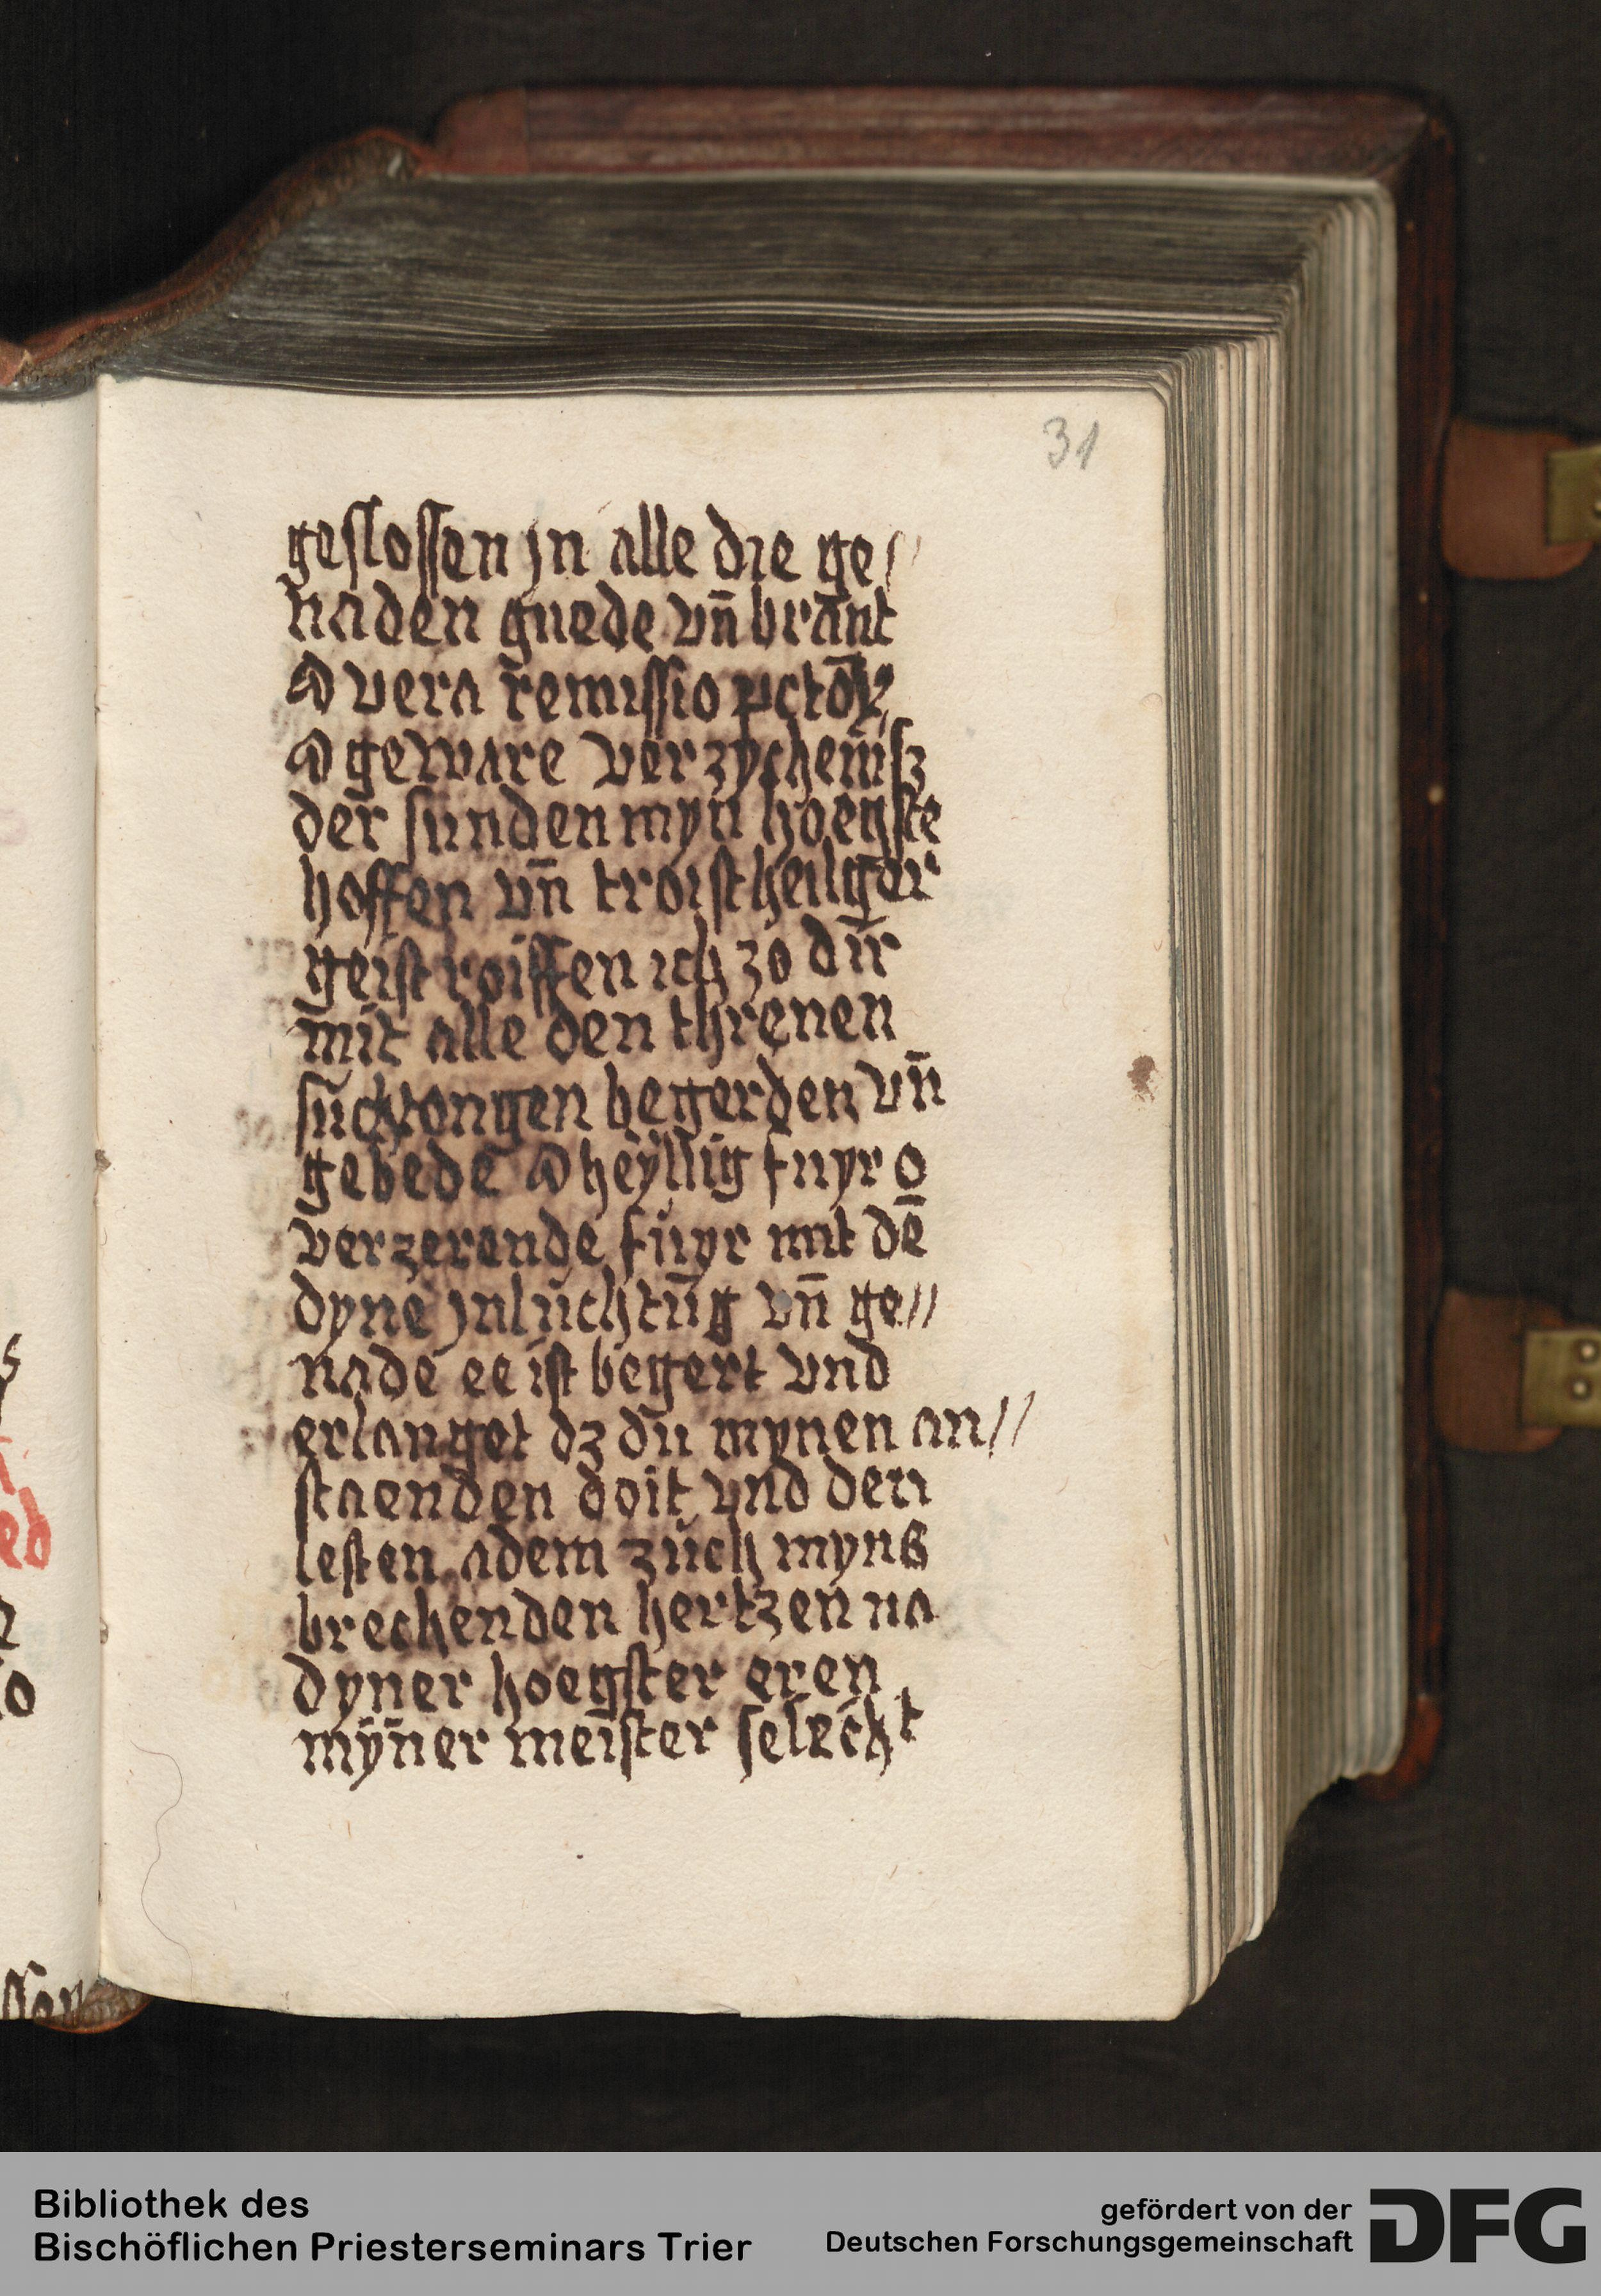 31
geslossen jn alle die ge//
naden guede vn̄ brant
O vera remissio pctoꝝ
O geware verzychenisz
der sunden myn hoegste
hoffen vn̄ troist heilger
geist roiffen ich zo dir
mit alle den threnen
suchtongen begerden vn̄
gebede O heyllig fuyr o
verzerende fuyr mit dē
dyne jnluchtūg vn̄ ge//
nade ee ist begert vnd
erlanget dz du mynen an//
staenden doit vnd den
lesten adem zuch myns
brechenden hertzen na
dyner hoegster eren
myner meister selecht
Bibliothek des
Bischöflichen Priesterseminars Trier
gefördert von der
Deutschen Forschungsgemeinschaft
DFG